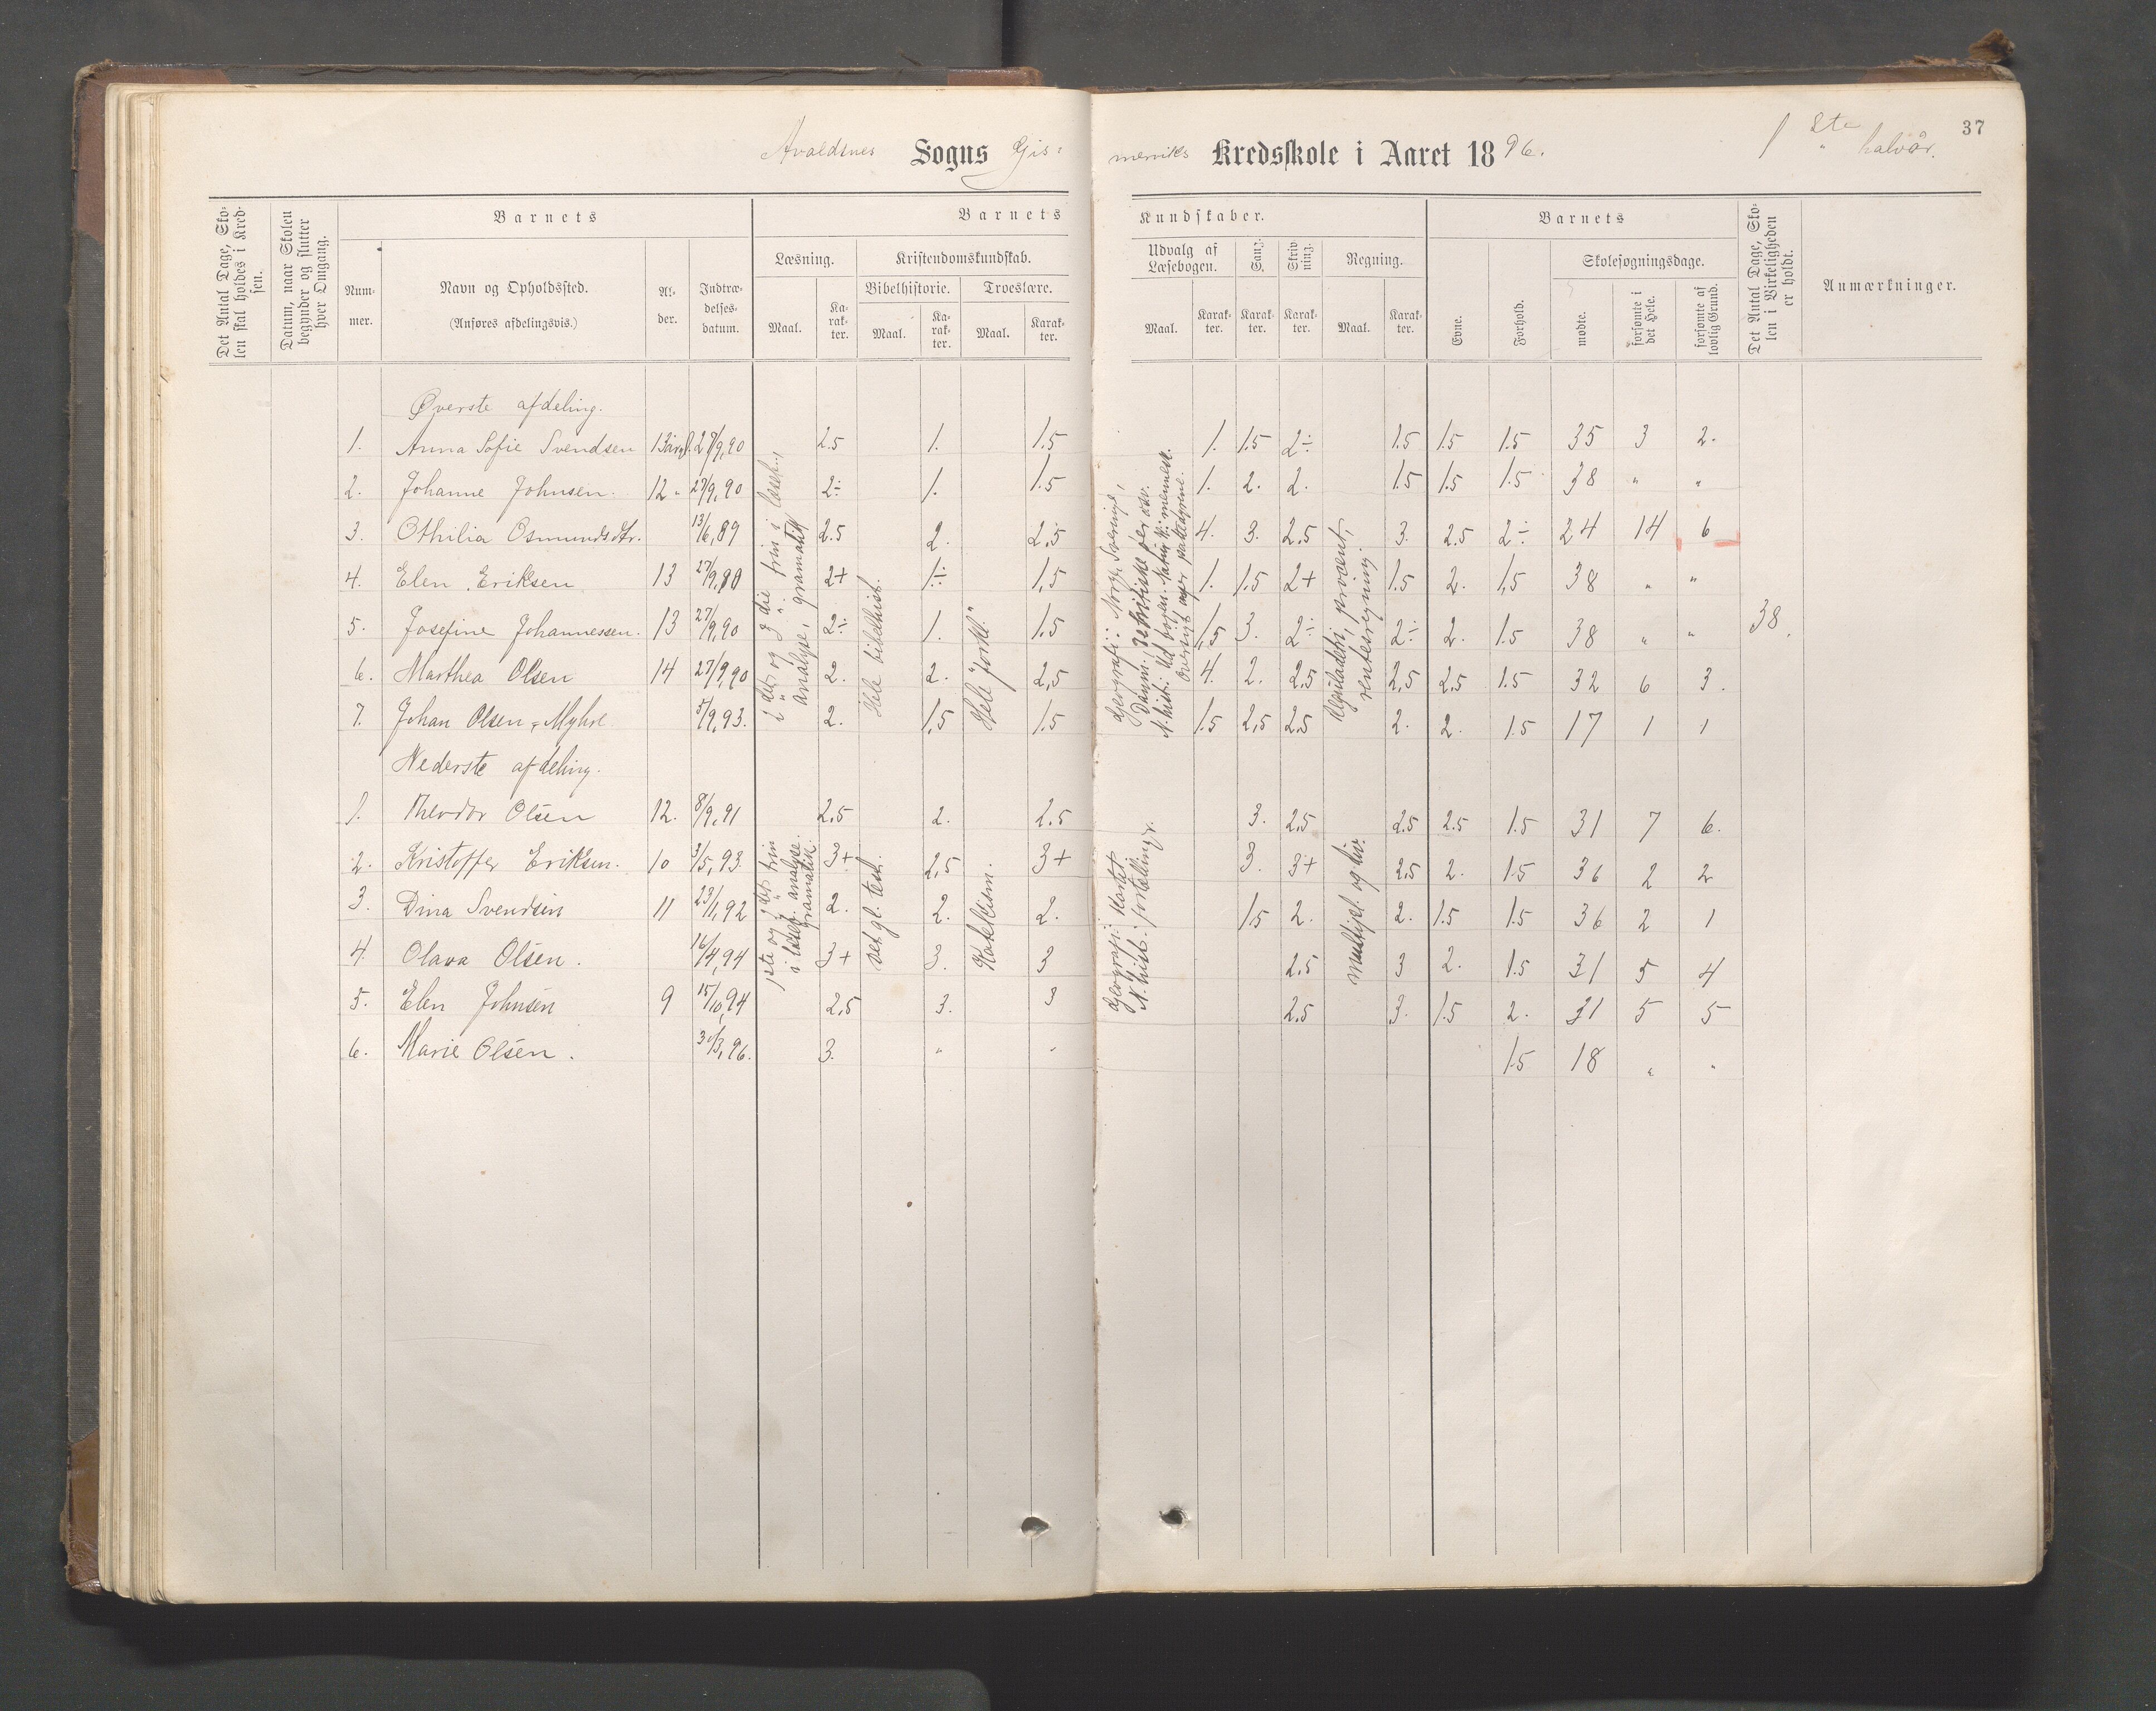 Avaldsnes Sogns Gis=
merviks Kredsskole i Aaret 1896.
1ste halvår.
37
Det Antal Dage, Sko-
len skal holdes i Kred-
sen.
Datum, naar Skolen
begynder og slutter
hver Omgang.
Barnets
Num-
mer.
Navn og Opholdssted.
(Anføres afdelingsvis.)
Al-
der.
Indtræ-
delses-
datum.
Barnets
Læsning.
Maal.
Ka-
rak-
ter.
Kristendomskundskab.
Bibelhistorie.
Maal.
Ka-
rak-
ter.
Troeslære.
Maal.
Karak-
ter.
Kundskaber.
Udvalg af
Læsebogen.
Maal.
Karak-
ter.
Sang.
Karak-
ter.
Skriv-
ning.
Karak-
ter.
Regning.
Maal.
Karak-
ter.
Barnets
Evne.
Forhold.
Skolesøgningsdage.
mødte.
forsømte i
det Hele.
forsømte af
lovlig Grund.
Det Antal Dage, Sko-
len i Virkeligheden
er holdt.
Anmærkninger.
Øverste afdeling.
1. Anna Sofie Svendsen 13 år 27/9,90 2.5 1. 1.5 1. 1.5 2÷ 1.5 1.5 1.5 35 3 2.
2. Johanne Johnsen. 12 " 27/9,90 2÷ 1. 1.5 1. 2. 2. 1.5 1.5 1.5 38 " "
3. Othilia Osmundsdtr. 13/6,89 2.5 2. 2,5 4. 3. 2,5 3. 2.5 2÷ 24 14 6
4. Elen Eriksen 13 27/9,90 2+ 1÷ 1,5 1. 1.5 2+ 1.5 2. 1,5 38 " "
5. Josefine Johannessen. 13 27/9,90 2÷ 1. 1.5 1,5 3. 2÷ 2÷ 2. 1.5 38 " " 38.
6. Marthea Olsen 14 27/9,90 2. 2. 2,5 4. 2. 2.5 2,5 2.5 1.5 32 6 3.
7. Johan Olsen, Myhre 5/9,93. 2. 1,5 1.5 1.5 2,5 2.5 2. 2. 1.5 17 1 1
2det og 3die trin i læseb.,
analyse, gramatik
Hele bibelhist.
Hele forkl."
Geografi: Norge, Sverige,
N.hist.:
Reguladetri, procent,
rentesregning.
Nederste afdeling.
1. Theodor Olsen 12. 8/9,91 2,5 2. 2.5 3. 2,5 2.5 2.5 1.5 31 7 6.
2. Kristoffer Eriksen. 10 3/5,93. 3+ 2,5 3+ 3. 3+ 2,5 2. 1.5 36 2 2
3. Dina Svendsen 11 23/1,92 2. 2. 2. 1.5 2. 2. 1.5 1.5 36 2 1
4. Olava Olsen. 16/4,94 3+ 3. 3 2.5 3 2. 1.5 31 5 4
5. Elen Johnsen 9 15/10,94 2.5 3. 3 2.5 3. 1.5 2. 31 5 5
6. Marie Olsen. 30/3,96. 3. " " 1.5 18 " "
1ste og 2det trin
i læseb. analyse.
gramatik.
Det gl. test.
Katekism.
Geografi: Kartet
N.hist.: fortellinger.
multipl. og div.